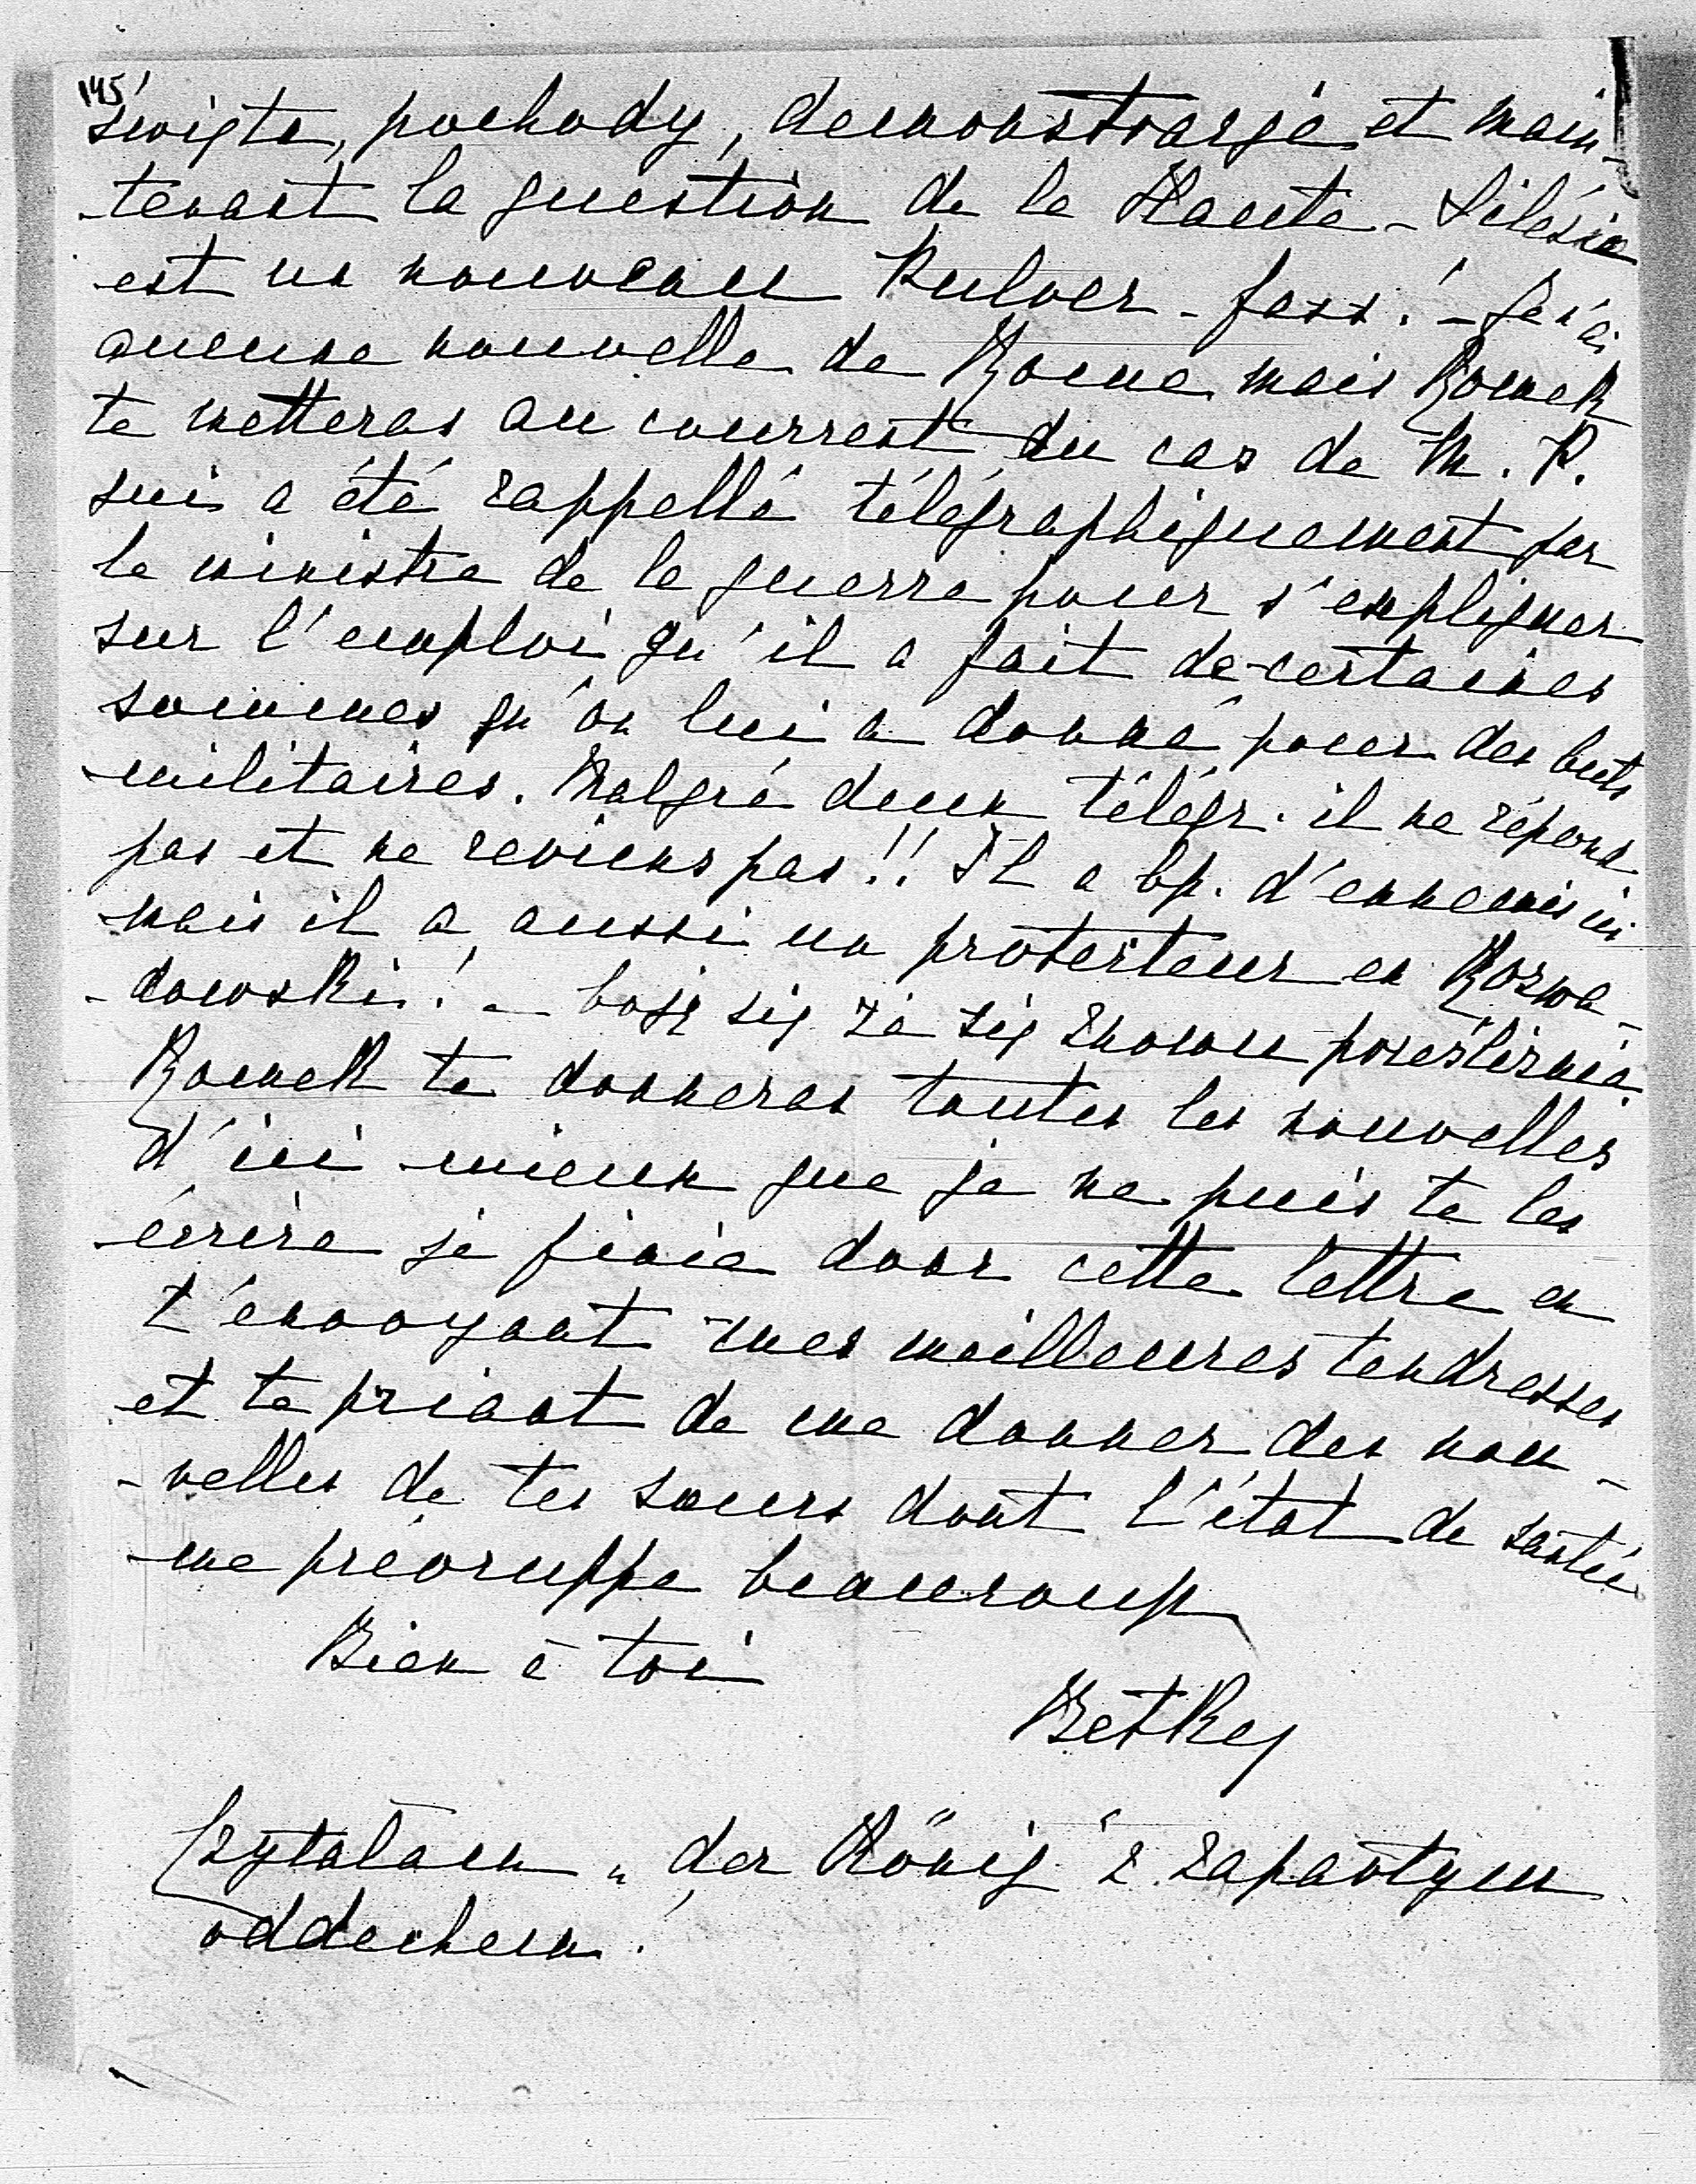 145
święta, pochody, demonstracje et main-
-tenant la question de la Haute-Silésie
est un nouveau Pulver-fass! - Je n'ai
aucune nouvelle de Rome mais Romek
te metteras au courrent du cas de M. P.
qui a été rappellé télégraphiquement par
le ministre de la guerre pour s'expliquer
sur l'emploi qu'il a fait de certaines
sommes qu'on lui a donné pour des buts
militaires. Malgré deux télégr. il ne répond
pas et ne reviens pas!! Il a bp. d'ennemis ici
mais il a aussi un protecteur en Rozwa-
-dowski! - boję się że się znowu prześliźnie.
Romek te donneras toutes les nouvelles
d'ici mieux que je ne puis te les
écrire je finie donc cette lettre en
t'envoyant mes meilleures tendresses
et te priant de me donner des nou-
-velles de tes soeurs dont l'état de santée
me préocuppe beaucoup
Bien à toi
Betką
Czytałam „der König" z zapartym
oddechem.